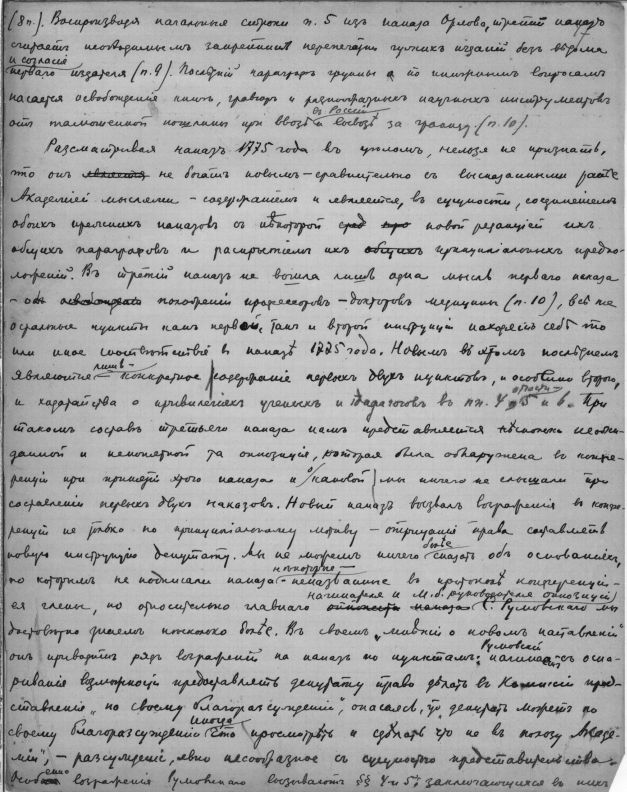 (8 п.). Воспроизводя начальные строки п. 5 изъ наказа Орлова, третій наказъ
считаетъ необходимымъ запретить перепечатку чужихъ изданій безъ вѣдома
и согласія
перваго издателя (п. 9). Послѣдній параграфъ группы по книжнымъ вопросамъ
касается освобожденія книгъ, гравюръ и разнообразныхъ научныхъ инструментовъ
въ Россію
отъ таможенной пошлины при ввозѣ и вывозѣ за границу (п. 10).
Разсматривая наказъ 1775 года въ цѣломъ, нельзя не признать,
что онъ является не богатъ новымъ – сравнительно съ высказанными ранѣе
Академіей мыслями – содержаніемъ и является, въ сущности, соединеніемъ
обоихъ прежнихъ наказовъ съ нѣкоторой новой редакціей ихъ
общихъ параграфовъ и раскрытіемъ ихъ общихъ принципіальныхъ предпо-
ложеній. Въ третій наказъ не вошла лишь одна мысль перваго наказа
– объ освобожденіи профессоровъ – докторовъ медицины (п. 10), всѣ же
остальные пункты какъ первой, такъ и второй инструкціи находятъ себѣ то
или иное соотвѣтствіе въ наказѣ 1775 года. Новымъ въ этомъ послѣднемъ
лишь
являются конкретное содержаніе первыхъ двухъ пунктовъ, и особенно второго,
отчасти
и ходатайства о привилегіяхъ ученыхъ и педагоговъ въ пп. 4, 5 и 6. При
такомъ составѣ третьяго наказа намъ представляется нѣсколько неожи-
данной и непонятной та оппозиція, которая была обнаружена въ конфе-
ренціи при принятіи этого наказа и о каковой мы ничего не слышали при
составленіи первыхъ двухъ наказовъ. Новый наказъ вызвалъ возраженія въ конфе-
ренціи не только по принципіальному мотиву – отрицанію права составлять
новую инструкцію депутату. Мы не можемъ ничего сказать объ основаніяхъ,
болѣе
по которымъ не подписали наказа неназванные въ протоколѣ конференціи
нѣкоторые
ея члены, но относительно главнаго С. Румовскаго мы
начинателя и м. б. руководителя оппозиціи
достовѣрно знаемъ нѣсколько болѣе. Въ своемъ „мнѣніи о новомъ наставленіи"
онъ приводитъ рядъ возраженій на наказъ по пунктамъ: начиная съ оспа-
Румовскій
риванія возможности предоставлять депутату право дѣлать въ Комиссіи пред-
ставленія „по своему благоразсужденію", опасаясь, что депутатъ можетъ по
своему благоразсужденію что просмотрѣть и сдѣлать что не въ пользу Акаде-
иногда
міи", – разсужденіе, явно несообразное съ сущностью представительства.
Особенно возраженія Румовскаго вызываютъ §§ 4 и 5, заключающіеся въ нихъ